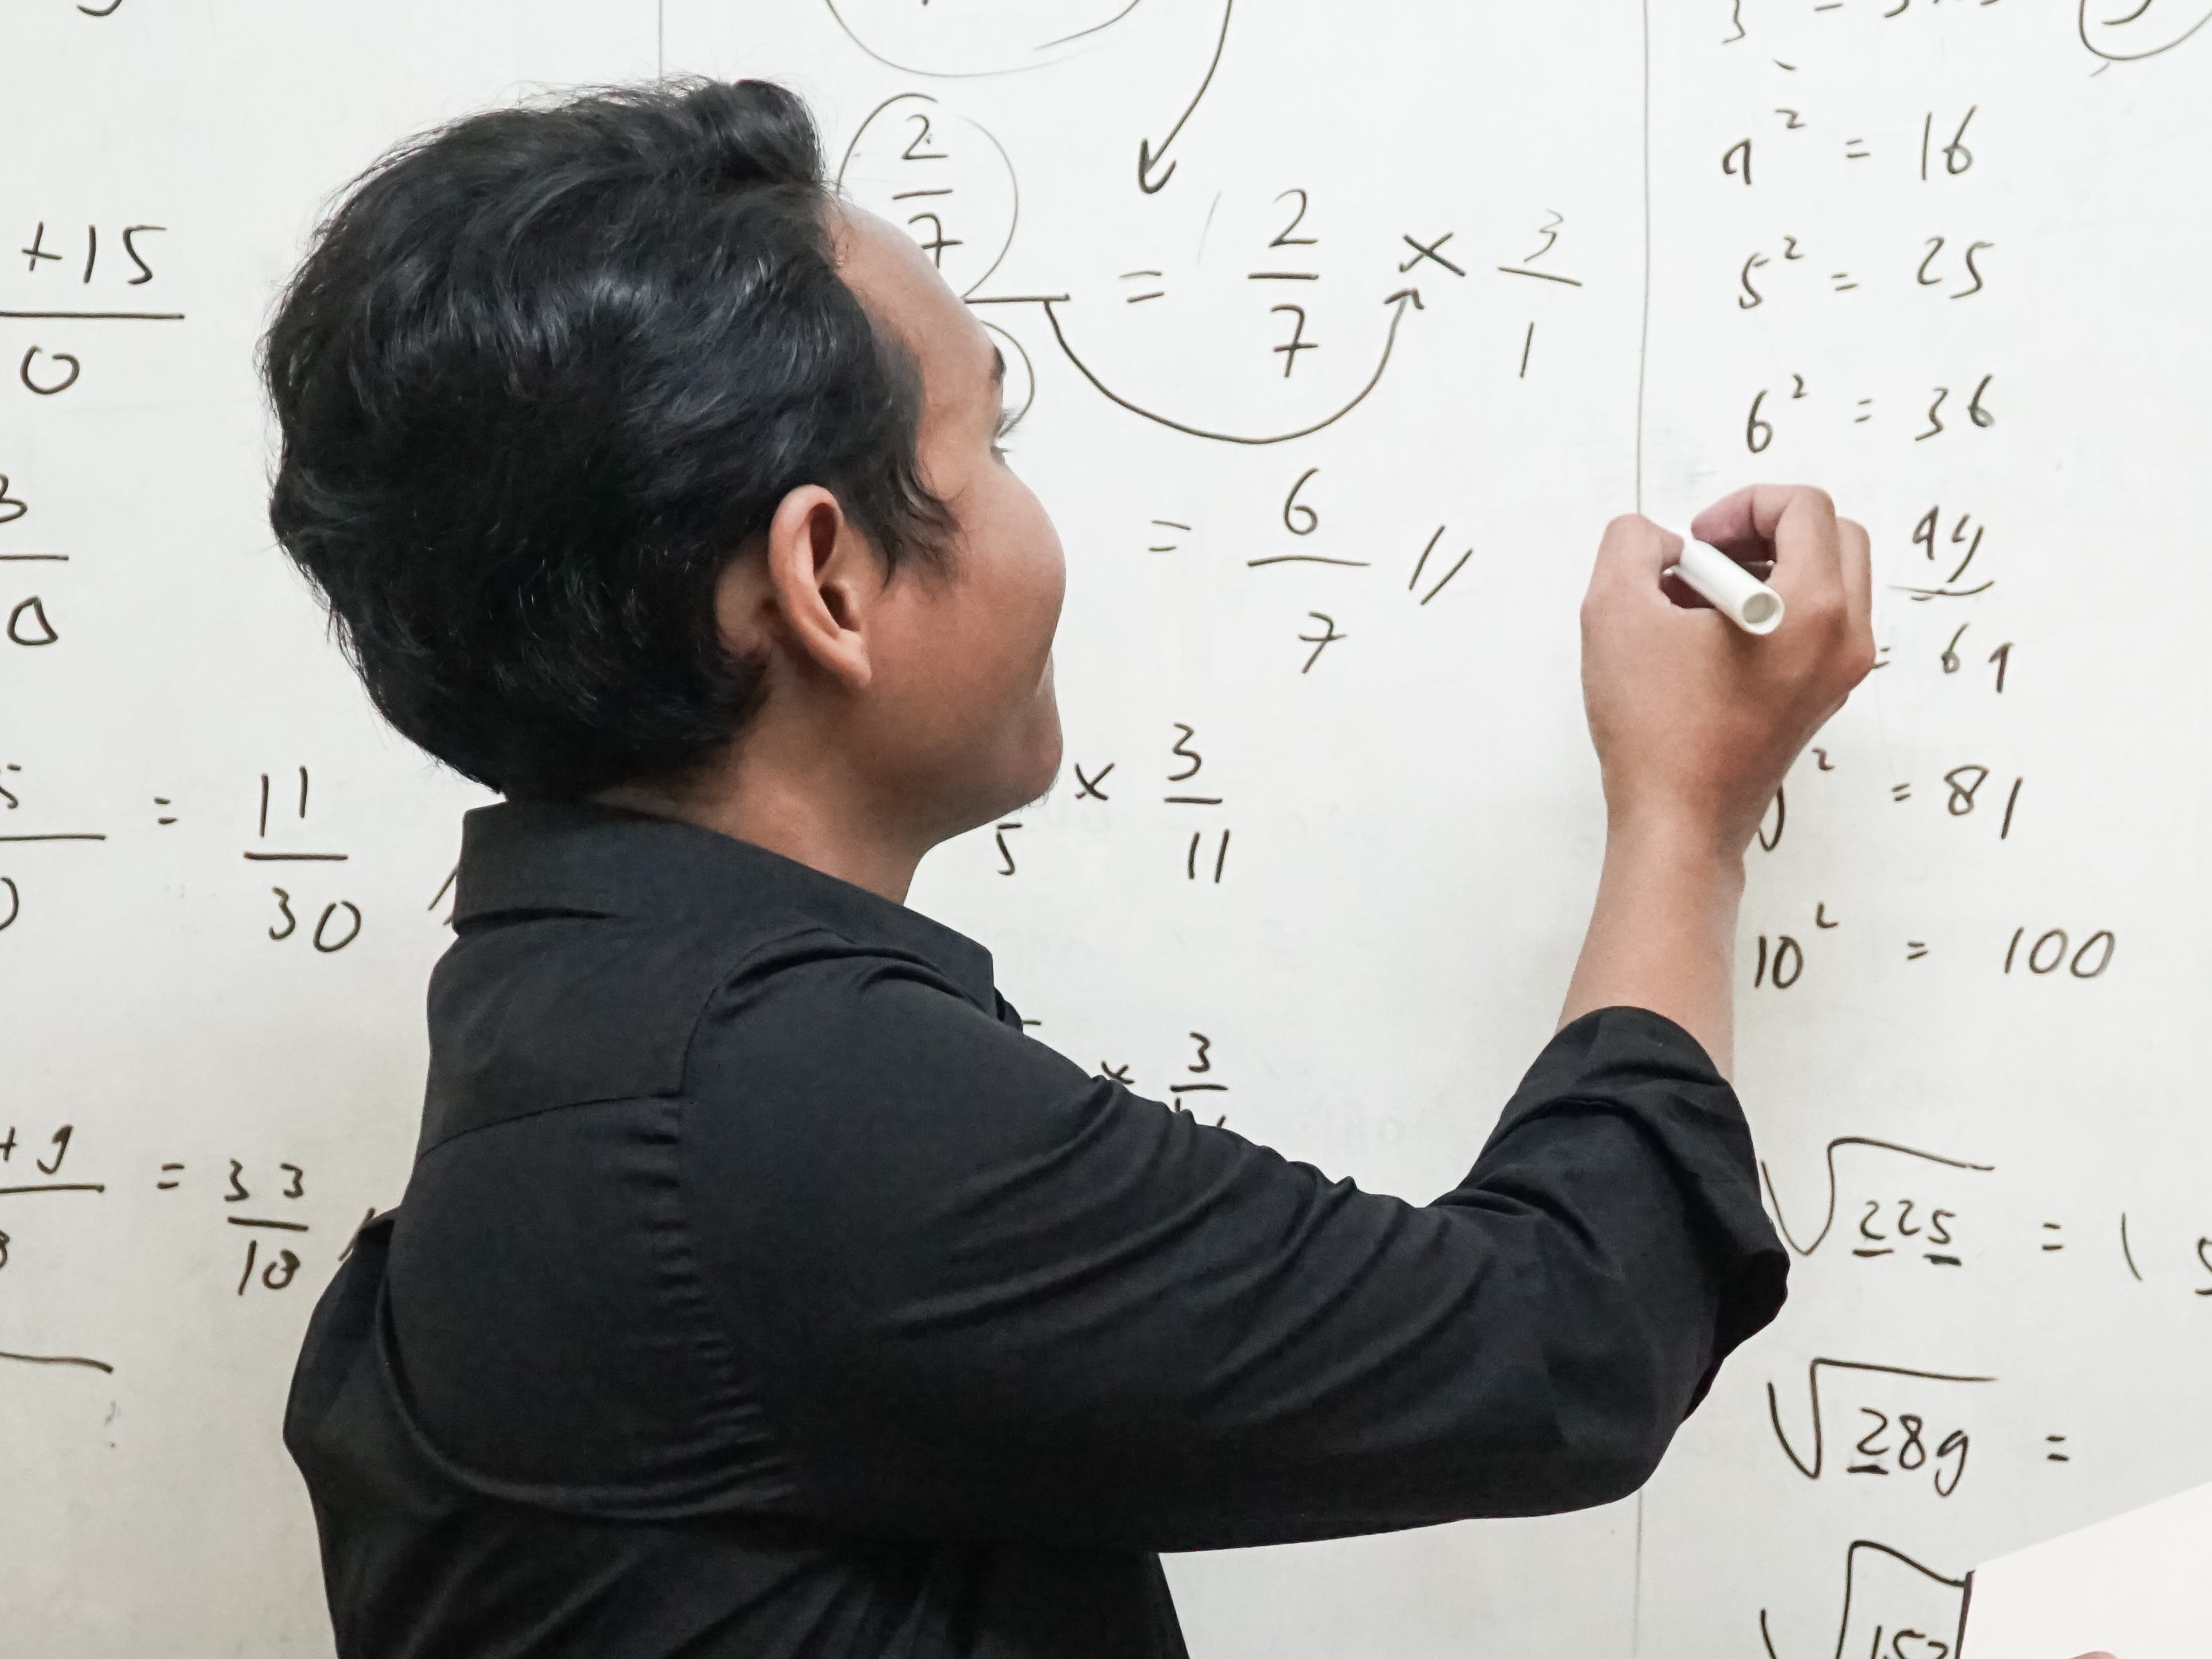 +15
0
3
0
5
= 11
30
+ 9 = 33
18
2
7 = 2
7 × 3
1
= 6
7 //
5 × 3
11
× 3
4² = 16
5² = 25
6² = 36
49
= 64
² = 81
10² = 100
√225 = 15
√289 =
√152